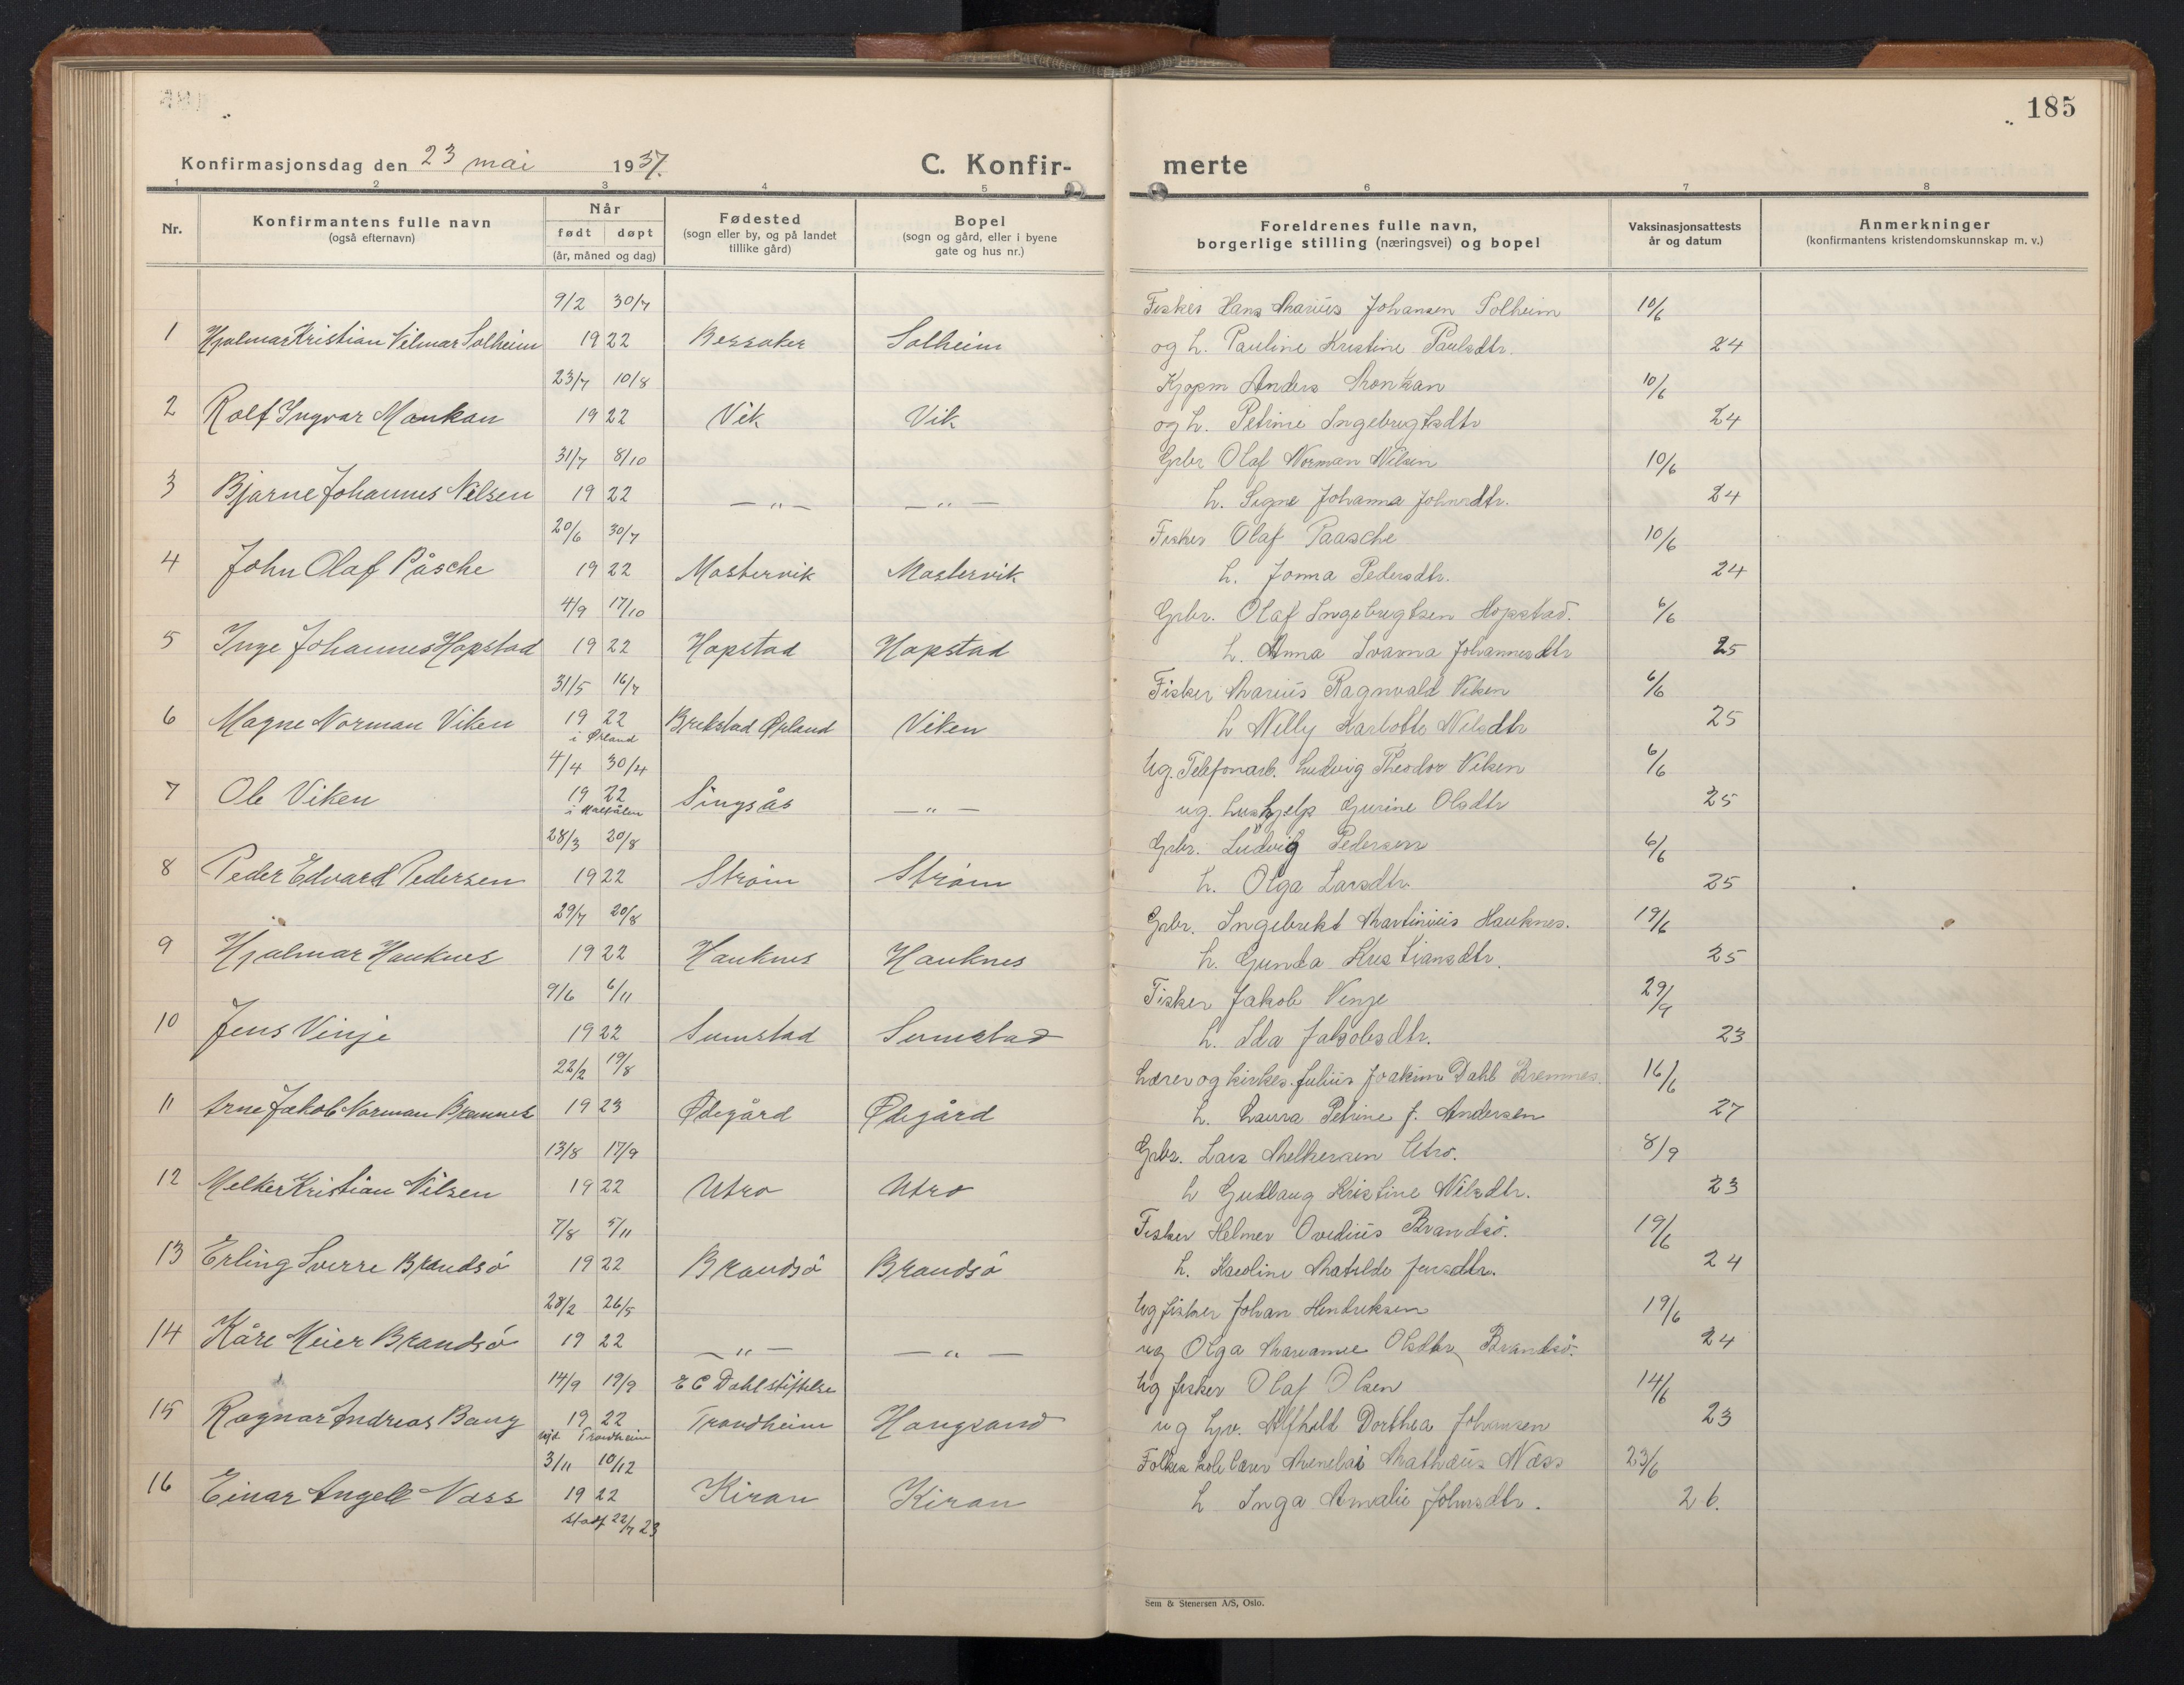 185
Konfirmasjonsdag den 23 mai 1937. C. Konfir- merte
1 2 3 4 5 6 7 8
Nr. Konfirmantens fulle navn (også efternavn) Når født døpt (år, måned og dag) Fødested (sogn eller by, og på landet tillike gård) Bopel (sogn og gård, eller i byene gate og hus nr.) Foreldrenes fulle navn, borgerlige stilling (næringsvei) og bopel Vaksinasjonsattests år og datum Anmerkninger (konfirmantens kristendomskunnskap m. v.)
9/2 30/7 Fisker Hans Marius Johansen Solheim 10/6
1 Hjalmar Kristian Vilmar Solheim 1922 Bessaker Solheim og h. Pauline Kristine Paulsdtr. 24
23/7 10/8 Kjøpm Anders Monkan 10/6
2 Rolf Ingvar Monkan 1922 Vik Vik og h. Petrine Ingebrigtsdtr 24
31/7 8/10 Grbr Olaf Norman Nilsen 10/6
3 Bjarne Johannes Nilsen 1922 — " — — " — h. Signe Johanna Johnsdtr. 24
20/6 30/7 Fisker Olaf Paasche 10/6
4 John Olaf Påsche 1922 Mastervik Mastervik h. Jonna Pedersdtr. 24
4/9 17/10 Grbr. Olaf Ingebrigtsen Hopstad. 6/6
5 Inge Johannes Hopstad 1922 Hopstad Hopstad h. Anna Ivarna Johannesdtr 25
31/5 16/7 Fisker Marius Ragnvald Viken 6/6
6 Magne Norman Viken 1922 i Ørland Brekstad Ørland Viken h Nelly Karlotte Nilsdtr 25
4/4 30/4 Ug. Telefonarb. Ludvig Theodor Viken 6/6
7 Ole Viken 1922 i Haltdalen Singsås — " — ug. hushjelp Gurine Olsdtr 25
28/3 20/8 Grbr. Ludvig Pedersen 6/6
8 Peder Edvard Pedersen 1922 Strøm Strøm h. Olga Larsdtr. 25
29/7 20/8 Grbr. Ingebrikt Martinius Hauknes. 19/6
9 Hjalmar Hauknes 1922 Hauknes Hauknes h. Gunda Kristiansdtr. 25
9/6 6/11 Fisker Jakob Vinje 29/9
10 Jens Vinje 1922 Sumstad Sumstad h. Ida Jakobsdtr. 23
22/2 19/8 Lærer og kirkes. Julius Joakim Dahl Bremnes. 16/6
11 Arne Jakob Norman Bremnes 1923 Ødegård Ødegård h. Laura Petrine J. Andersen 27
13/8 17/9 Grbr. Lars Melkersen Utro. 8/9
12 Melker Kristian Nilsen 1922 Utro Utro h Gudlaug Kristine Nilsdtr. 23
7/8 5/11 Fisker Helmer Ovedius Brandsö. 19/6
13 Erling Sverre Brandsö 1922 Brandsö Brandsö h. Karoline Matilde Jensdtr. 24
28/2 26/5 Ug fisker Johan Henriksen 19/6
14 Kåre Meier Brandsö 1922 — " — — " — ug Olga Marianne Olsdtr Brandsö. 24
14/9 19/9 E C Dahl stiftelse Ug fisker Olaf Olsen 14/6
15 Ragnar Andreas Bang 1922 Trondheim Trondheim Haugsand ug hjv. Alfhild Dorthea Johansen 23
3/11 10/12 Folkeskolelærer Menelai Mathæus Næss 23/6
16 Einar Angell Næss 1922 Kiran Kiran h Inga Amalie Johnsdtr. 26.
stadf 22/7 23
Sem & Stenersen A/S, Oslo.